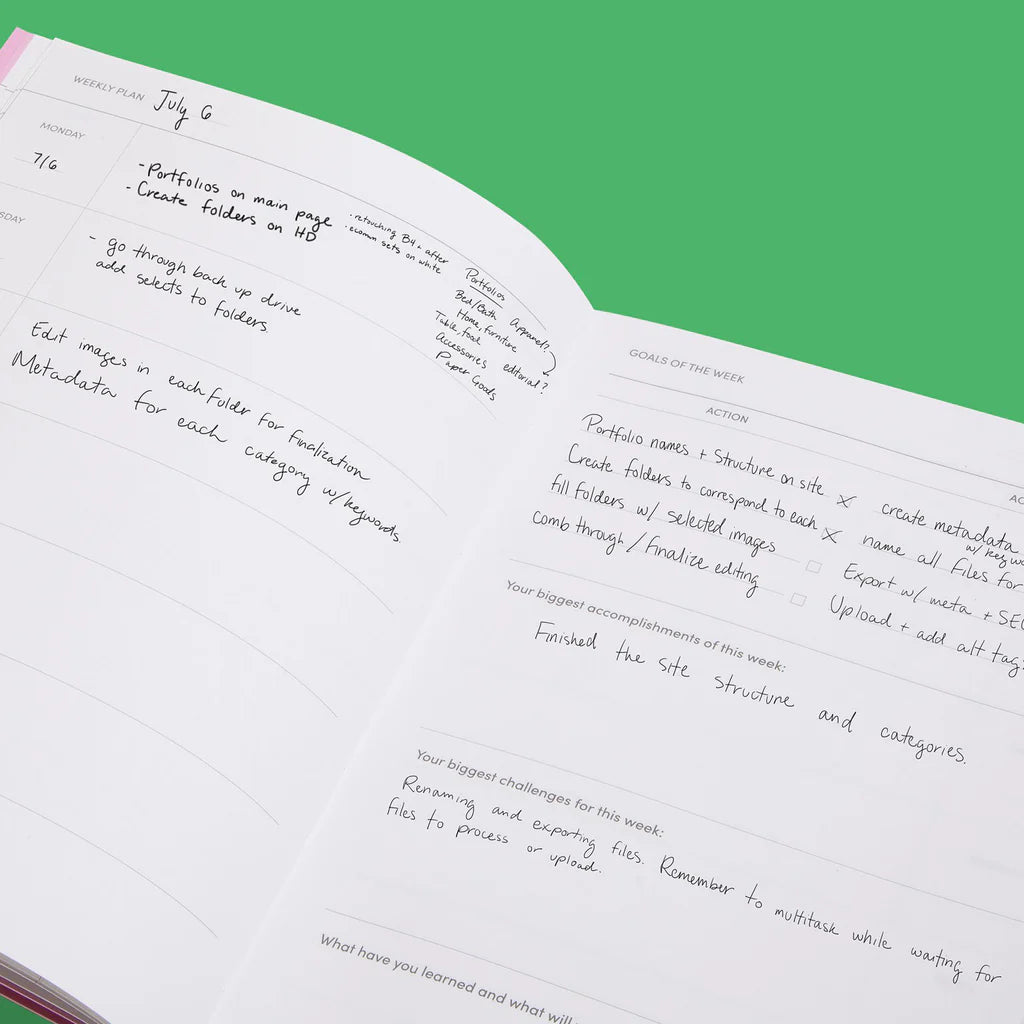 WEEKLY PLAN July 6
MONDAY
7/6
- Portfolios on main page
- Create folders on HD
· retouching B4 + after
· ecomm sets on white
Portfolios
Bed/Bath
Home, furniture
Table, food
Accessories
Paper Goods
Apparel?
editorial?
SDAY
- go through back up drive
add selects to folders
Edit images in each folder for finalization
Metadata for each category w/keywords.
GOALS OF THE WEEK
ACTION
Portfolio names + Structure on site X
Create folders to correspond to each X
fill folders w/ selected images
comb through / finalize editing
AC
create metadata
w/ keywo
name all files for
Export w/ meta + SEO
Upload + add alt tags
Your biggest accomplishments of this week:
Finished the site structure and categories.
Your biggest challenges for this week:
Renaming and exporting files. Remember to multitask while waiting for
files to process or upload.
What have you learned and what will